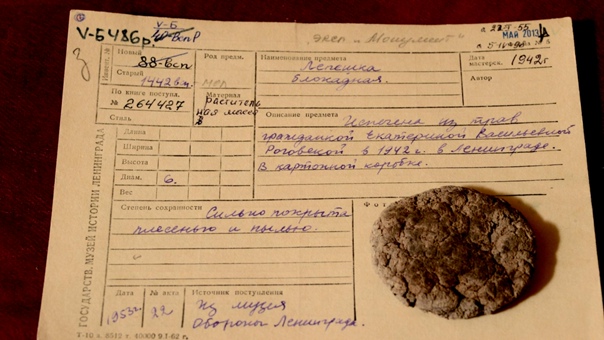 V-Б 486р.
V-Б
эксп. „Монумент"
МАЙ 2013
3
Инвент. №
Новый
88-бсп
Старый
1442 в.м.
По книге поступл.
№ 264427
Стиль
Род предм.
Материал
раститель
ная масса
Наименование предмета
Лепешка
блокадная.
Дата
мастерск. 1942г.
Автор
Длина
Ширина
Высота
Диам. 6.
Вес
Описание предмета Испечена из трав
гражданкой Екатериной Васильевной
Роговской в 1942 г. в Ленинграде.
В картонной коробке.
Степень сохранности Сильно покрыта
плесенью и пылью.
Фот
Дата
1953г.
№ акта
22
Источник поступления
Из музея
Обороны Ленинграда.
ГОСУДАРСТВ. МУЗЕЙ ИСТОРИИ ЛЕНИНГРАДА